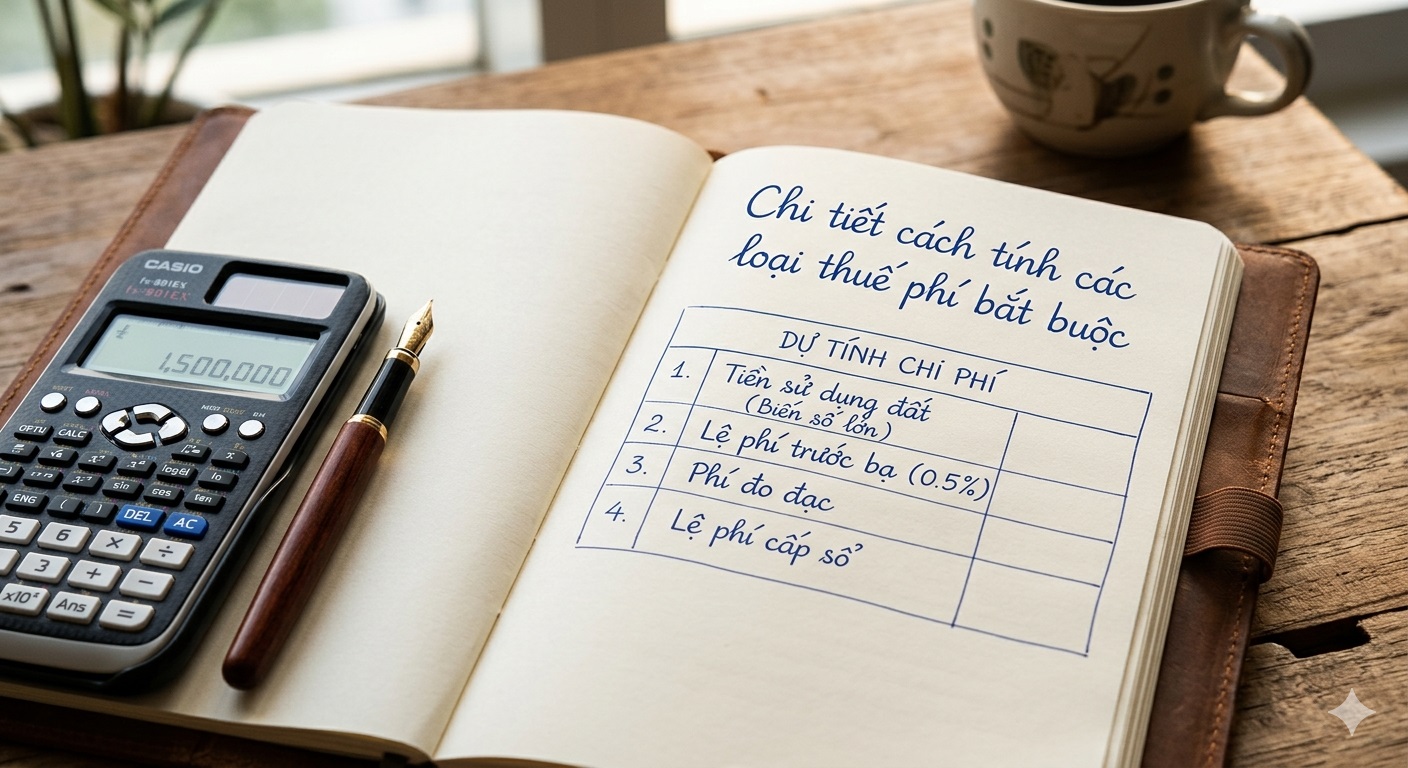 Chi tiết cách tính các
loại thuế phí bắt buộc
DỰ TÍNH CHI PHÍ
1. Tiền sử dụng đất
(Biến số lớn)
2. Lệ phí trước bạ (0.5%)
3. Phí đo đạc
4. Lệ phí cấp sổ
CASIO
1,500,000
OPTU CALC
ENG ( )
DEL AC
5 6 × ÷
3 + −
x10ˣ Ans =